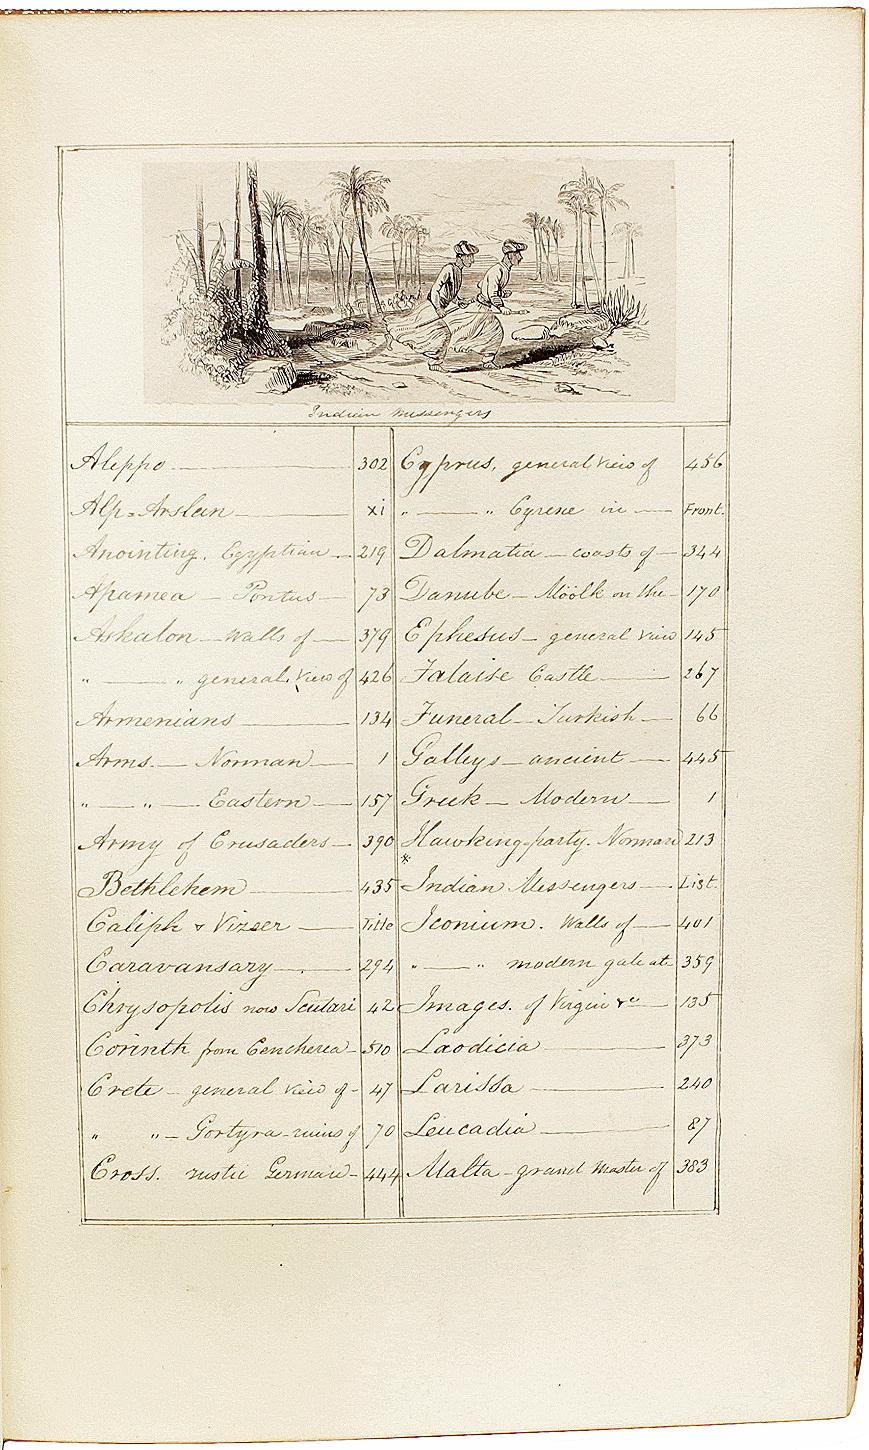 Indian Messengers
Aleppo 302
Alp-Arslan xi
Anointing, Egyptian 219
Apamea - Pontus 73
Askalon - Walls of 379
" " general view of 426
Armenians 134
Arms - Norman 1
" " Eastern 157
Army of Crusaders 390
Bethlehem 435
Caliph & Vizser Title
Caravansary 294
Chrysopolis now Scutari 42
Corinth from Cencherea 510
Crete - general view of 47
" " - Gortyra - ruins of 70
Cross. rustic German 444
Cyprus, general view of 456
" " Cyrene in Front.
Dalmatia - coasts of 344
Danube - Möölk on the 170
Ephesus - general view 145
Falaise Castle 267
Funeral - Turkish 66
Galleys - ancient 445
Greek - Modern 1
Hawking-party. Norman 213
* Indian Messengers List.
Iconium. Walls of 401
" " modern gate at 359
Images. of Virgin &c 135
Laodicia 373
Larissa 240
Leucadia 87
Malta - grand Master of 383